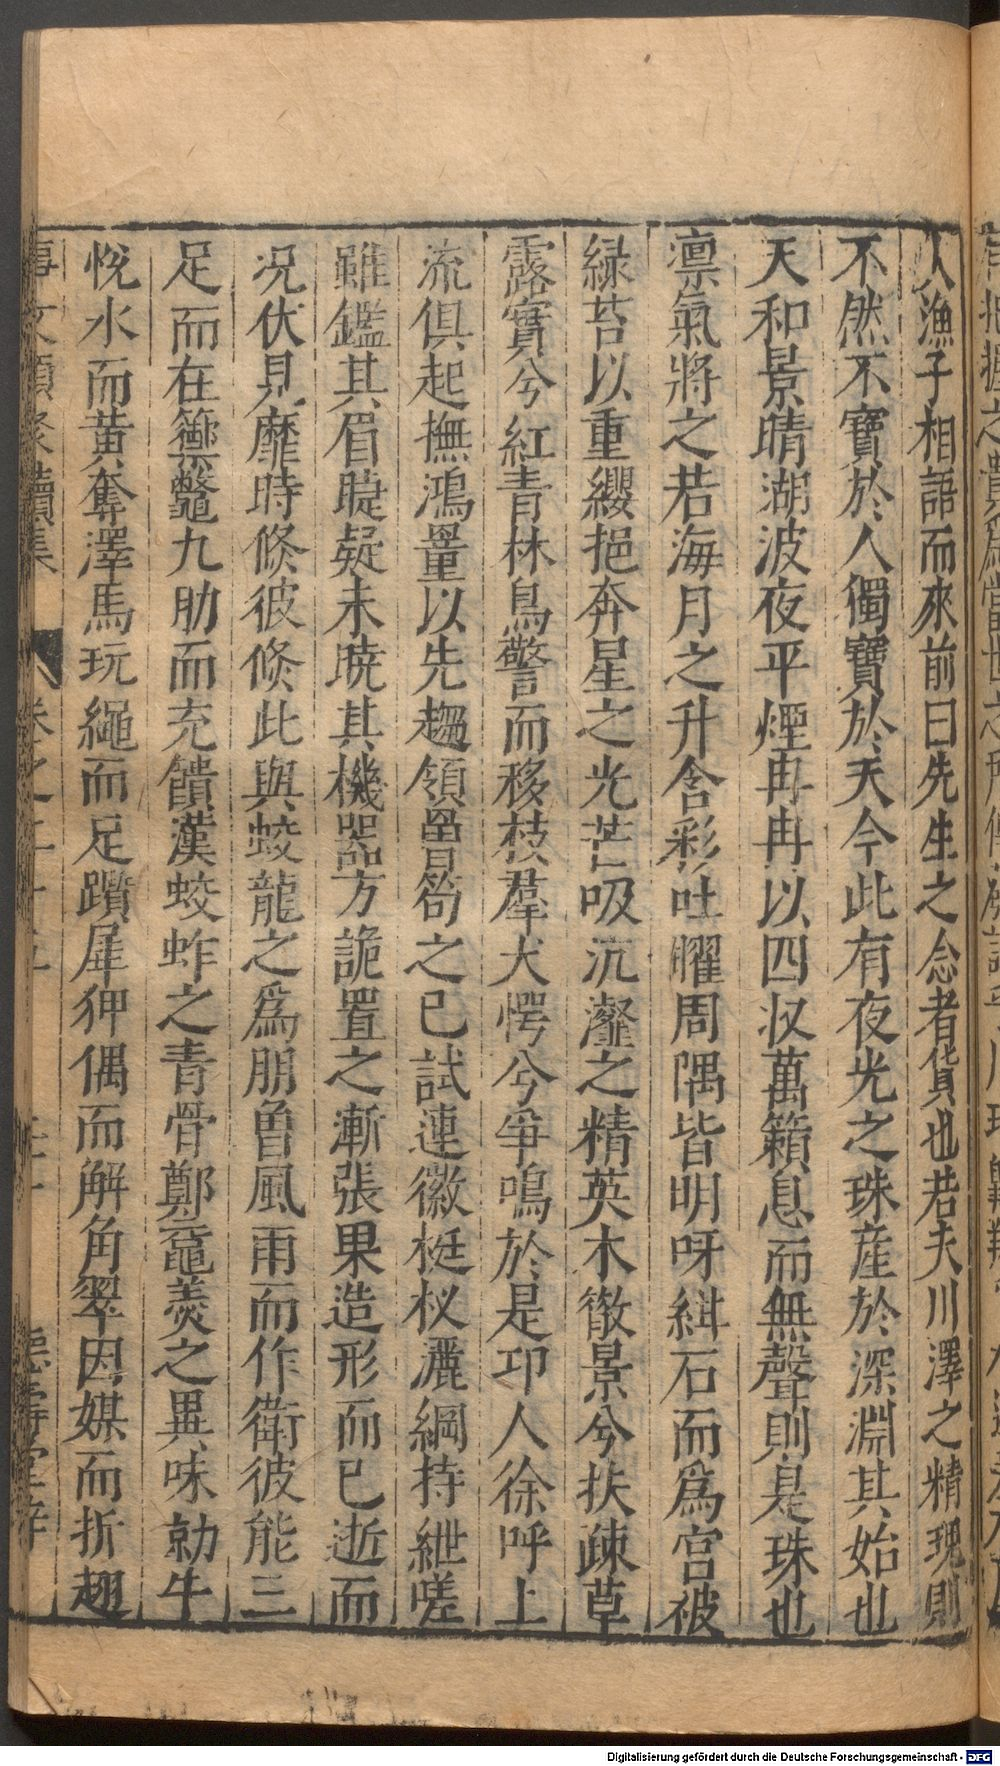 人漁子相語而來前曰先生之念者貨也若夫川澤之精瑰則
不然不寶於人獨寶於天今此有夜光之珠産於深淵其始也
天和景晴湖波夜平煙冉冉以四收萬籟息而無聲則是珠也
凛氣將之若海月之升含彩吐耀周隅皆明呀紺石而爲宮被
緑苔以重纓挹奔星之光芒吸沉瀣之精英木徹景兮扶疎草
露實兮紅青林鳥警而移枝羣犬愕兮爭鳴於是卭人徐呼上
流俱起撫鴻罿以先趨領罾笱之已試連徽梃杈灑綱持紲嗟
雖鑑其眉睫疑未曉其機器方詭置之漸張果造形而已逝而
况伏見靡時倏彼倏此與蛟龍之爲朋魯風雨而作衛彼能三
足而在籞鼈九肋而充饋漢蛟蚱之青骨鄭黿羮之異味勍牛
悅水而黄奪澤馬玩繩而足躓犀狎偶而解角翠因媒而折翅
事文類聚續集
卷之二十五
德壽堂梓
Digitalisierung gefördert durch die Deutsche Forschungsgemeinschaft - DFG